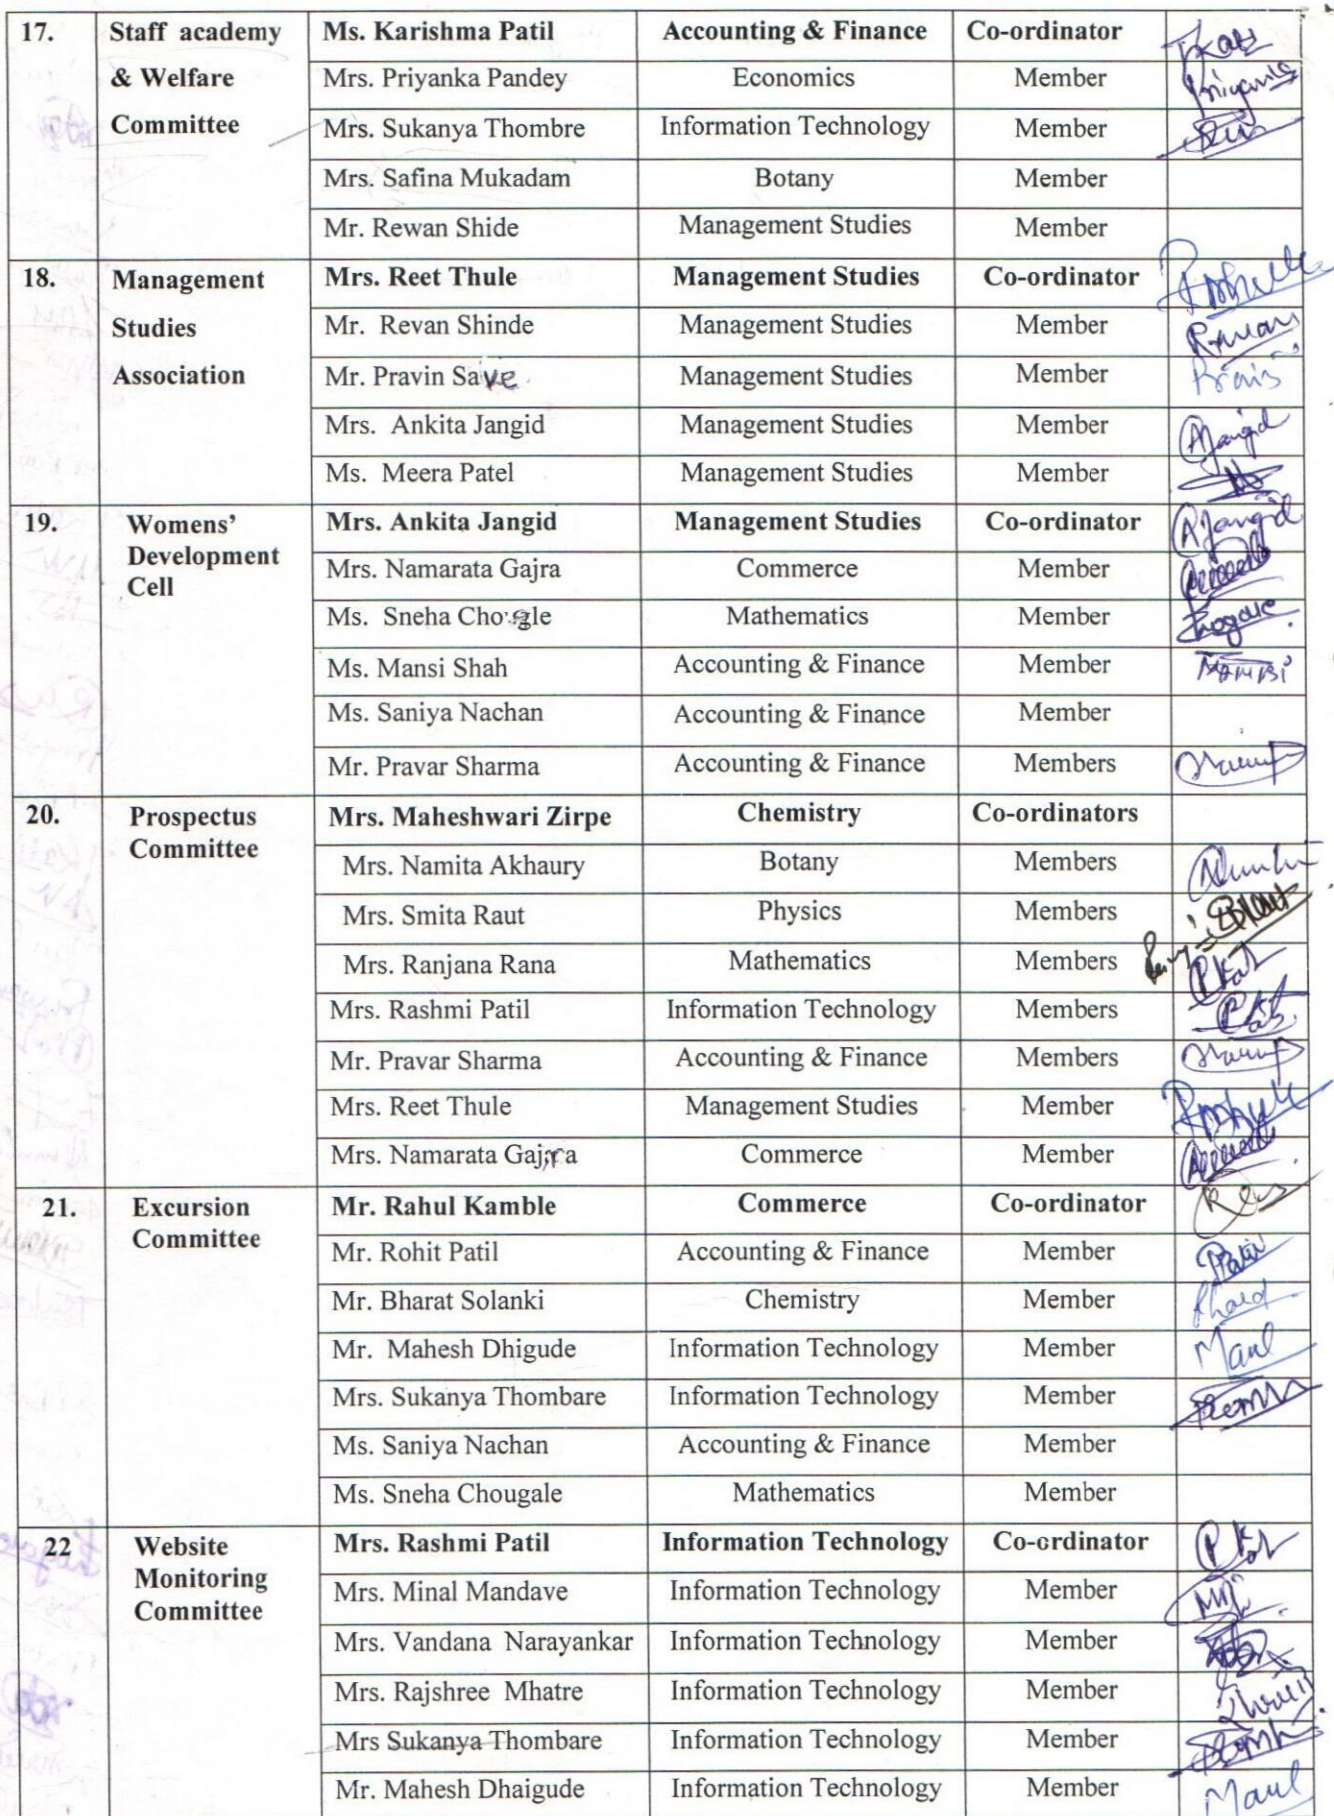 17. Staff academy Ms. Karishma Patil Accounting & Finance Co-ordinator
& Welfare Mrs. Priyanka Pandey Economics Member
Committee Mrs. Sukanya Thombre Information Technology Member
Mrs. Safina Mukadam Botany Member
Mr. Rewan Shide Management Studies Member
18. Management Mrs. Reet Thule Management Studies Co-ordinator
Studies Mr. Revan Shinde Management Studies Member
Association Mr. Pravin Save Management Studies Member
Mrs. Ankita Jangid Management Studies Member AJangid
Ms. Meera Patel Management Studies Member
19. Womens' Mrs. Ankita Jangid Management Studies Co-ordinator AJangid
Development Mrs. Namarata Gajra Commerce Member
Cell Ms. Sneha Chogle Mathematics Member
Ms. Mansi Shah Accounting & Finance Member
Ms. Saniya Nachan Accounting & Finance Member
Mr. Pravar Sharma Accounting & Finance Members
20. Prospectus Mrs. Maheshwari Zirpe Chemistry Co-ordinators
Committee Mrs. Namita Akhaury Botany Members
Mrs. Smita Raut Physics Members
Mrs. Ranjana Rana Mathematics Members
Mrs. Rashmi Patil Information Technology Members
Mr. Pravar Sharma Accounting & Finance Members
Mrs. Reet Thule Management Studies Member
Mrs. Namarata Gajra Commerce Member
21. Excursion Mr. Rahul Kamble Commerce Co-ordinator
Committee Mr. Rohit Patil Accounting & Finance Member
Mr. Bharat Solanki Chemistry Member
Mr. Mahesh Dhigude Information Technology Member
Mrs. Sukanya Thombare Information Technology Member
Ms. Saniya Nachan Accounting & Finance Member
Ms. Sneha Chougale Mathematics Member
22 Website Mrs. Rashmi Patil Information Technology Co-ordinator
Monitoring Mrs. Minal Mandave Information Technology Member
Committee Mrs. Vandana Narayankar Information Technology Member
Mrs. Rajshree Mhatre Information Technology Member
Mrs Sukanya Thombare Information Technology Member
Mr. Mahesh Dhaigude Information Technology Member